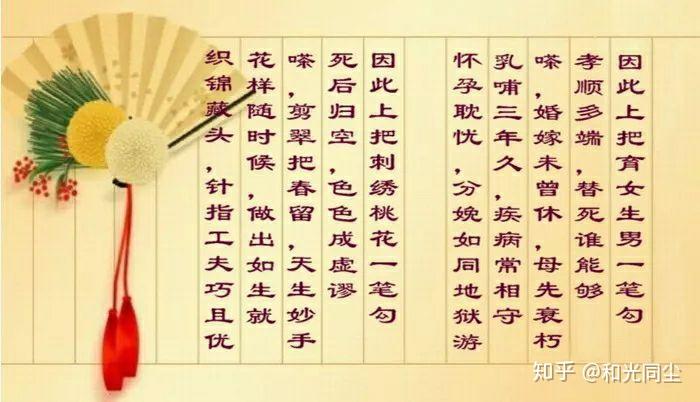 织锦藏头，针指工夫巧且优
花样随时候，做出如生就
嗏，剪翠把春留，天生妙手
死后归空，色色成虚谬
因此上把刺绣桃花一笔勾
怀孕耽忧，分娩如同地狱游
乳哺三年久，疾病常相守
嗏，婚嫁未曾休，母先衰朽
孝顺多端，替死谁能够
因此上把育女生男一笔勾
知乎 @和光同尘